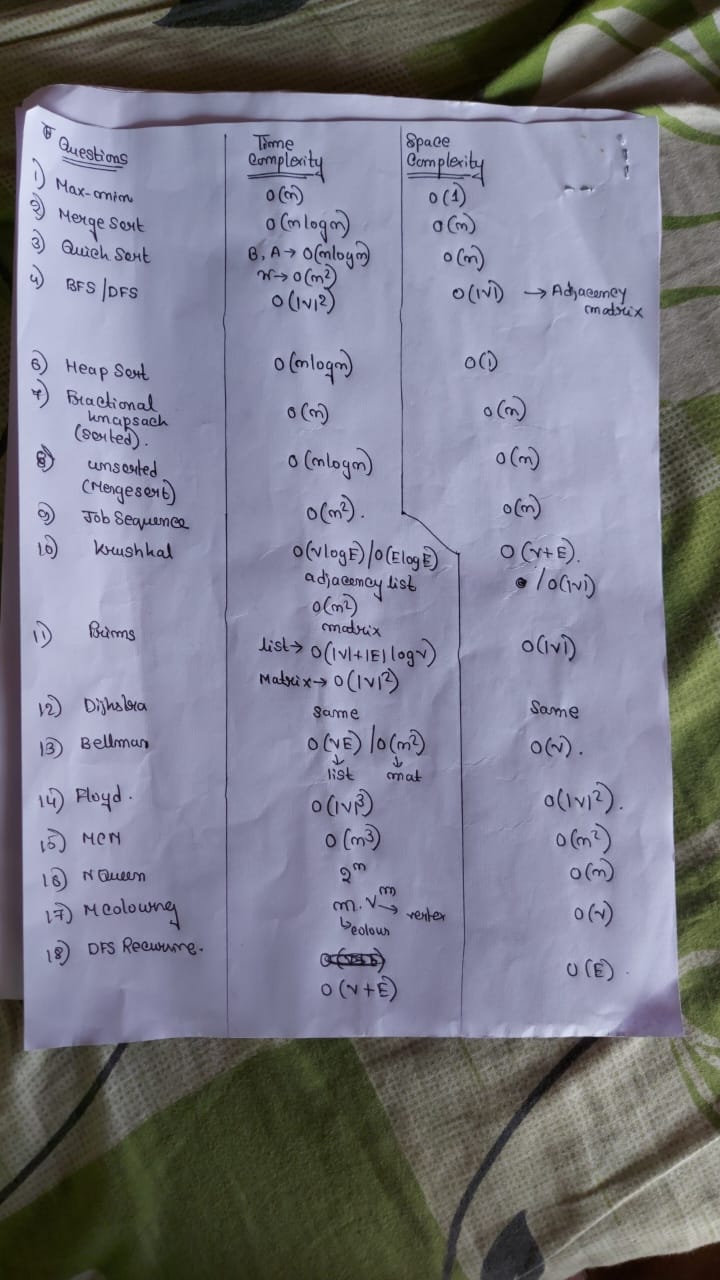 Questions Time Complexity Space Complexity
1) Max-min O(n) O(1)
2) Merge Sort O(nlogn) O(n)
3) Quick Sort B, A→ O(nlogn) O(n)
W→ O(n²)
4) BFS/DFS O(|V|²) O(|V|) → Adjacency matrix
6) Heap Sort O(nlogn) O(1)
7) Fractional knapsack (sorted). O(n) O(n)
8) unsorted (Mergesort) O(nlogn) O(n)
9) Job Sequence O(n²). O(n)
10) Krushkal O(VlogE)/O(ElogE) O(V+E).
adjacency list / O(|V|)
O(n²)
matrix
11) Prims list→ O(|V|+|E| logV) O(|V|)
Matrix→ O(|V|²)
12) Dijhstra same Same
13) Bellman O(VE) / O(n²) O(V).
↓ ↓
list mat
14) Floyd. O(|V|³) O(|V|²).
15) MCM O(n³) O(n²)
16) N Queen 2ⁿ O(n)
17) Mcolouring m.Vᵐ → vertex O(V)
↳ colour
18) DFS Recursive. O(V+E) O(E).